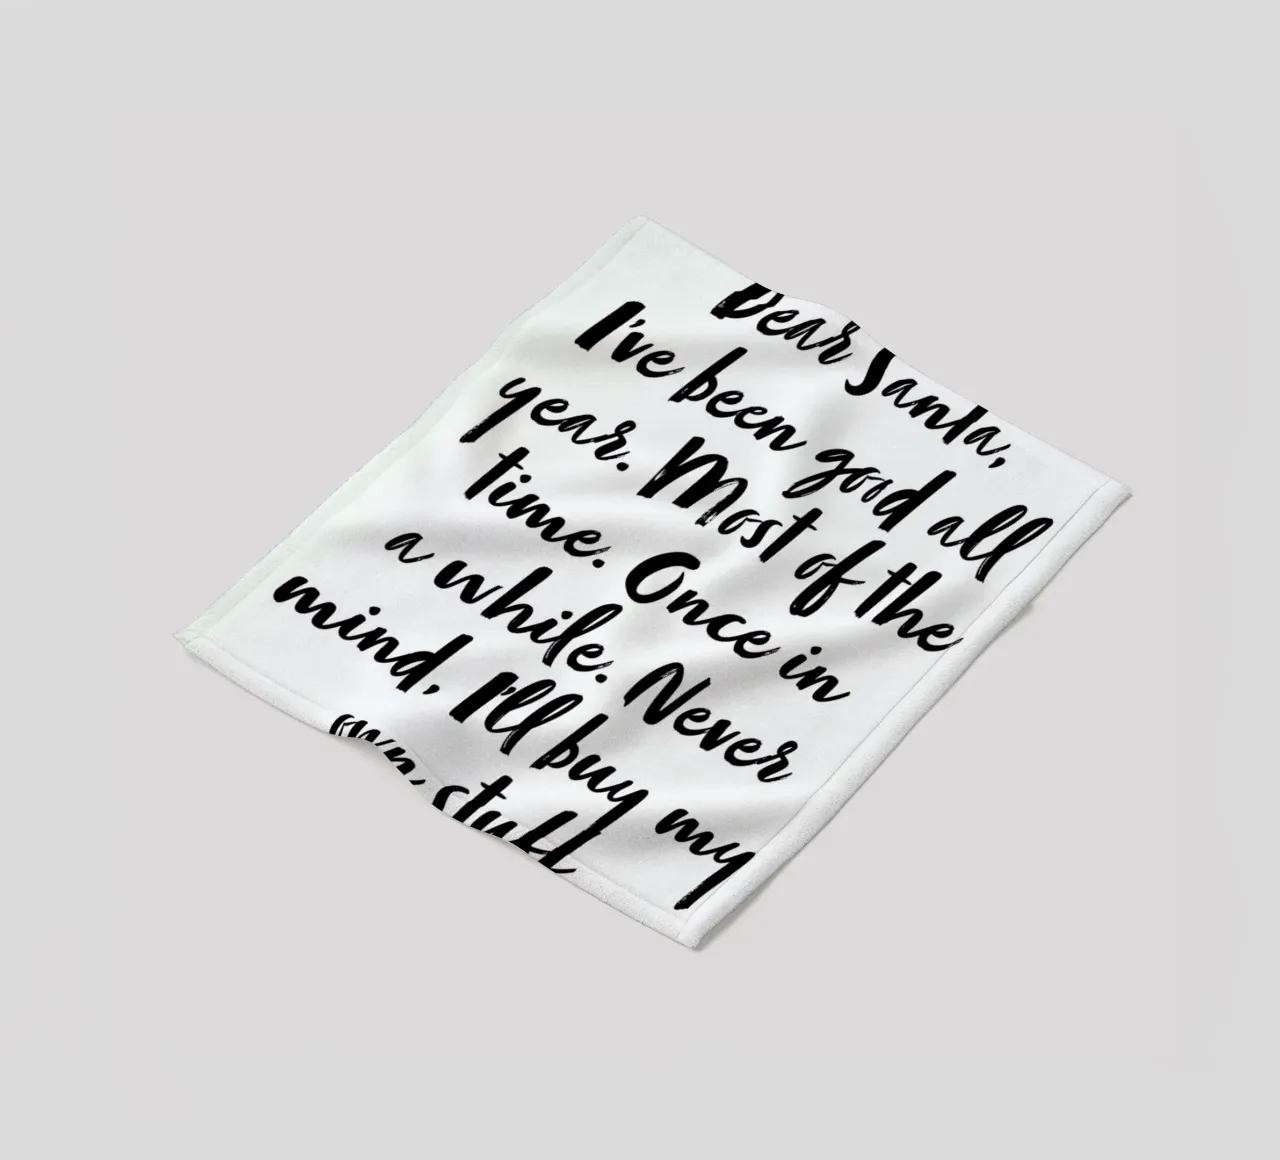 Dear Santa,
I've been good all
year. Most of the
time. Once in
a while. Never
mind, I'll buy my
own stuff